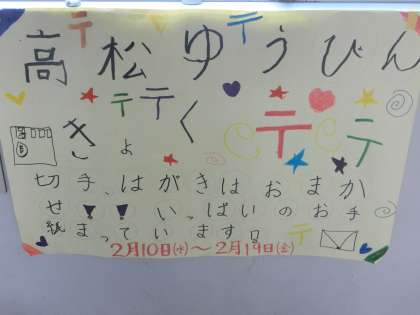 高松ゆうびん
きょく
切手、はがきはおまか
せ!!いっぱいのお手
紙まっています。
2月10日(水)～2月19日(金)